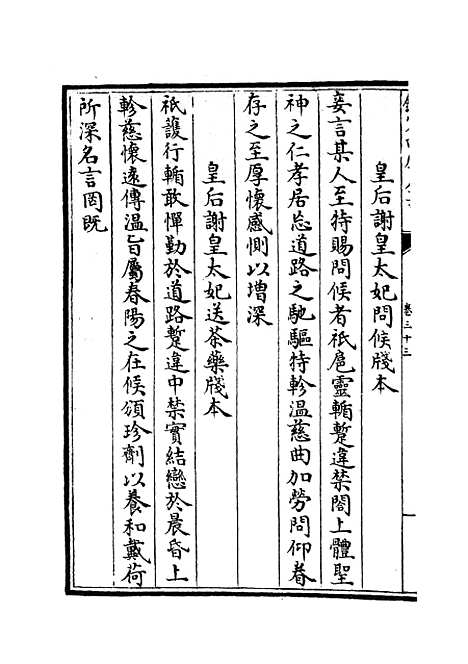 卷三十三
皇后謝皇太妃問候牋本
妾言某人至特賜問候者祇扈靈輴蹔違禁閤上體聖
神之仁孝居忘道路之馳驅特軫溫慈曲加勞問仰眷
存之至厚懷感惻以增深
皇后謝皇太妃送茶藥牋本
祇護行輴敢憚勤於道路蹔違中禁實結戀於晨昏上
軫慈懷遠傳溫旨屬春陽之在候頒珍劑以養和戴荷
所深名言罔既